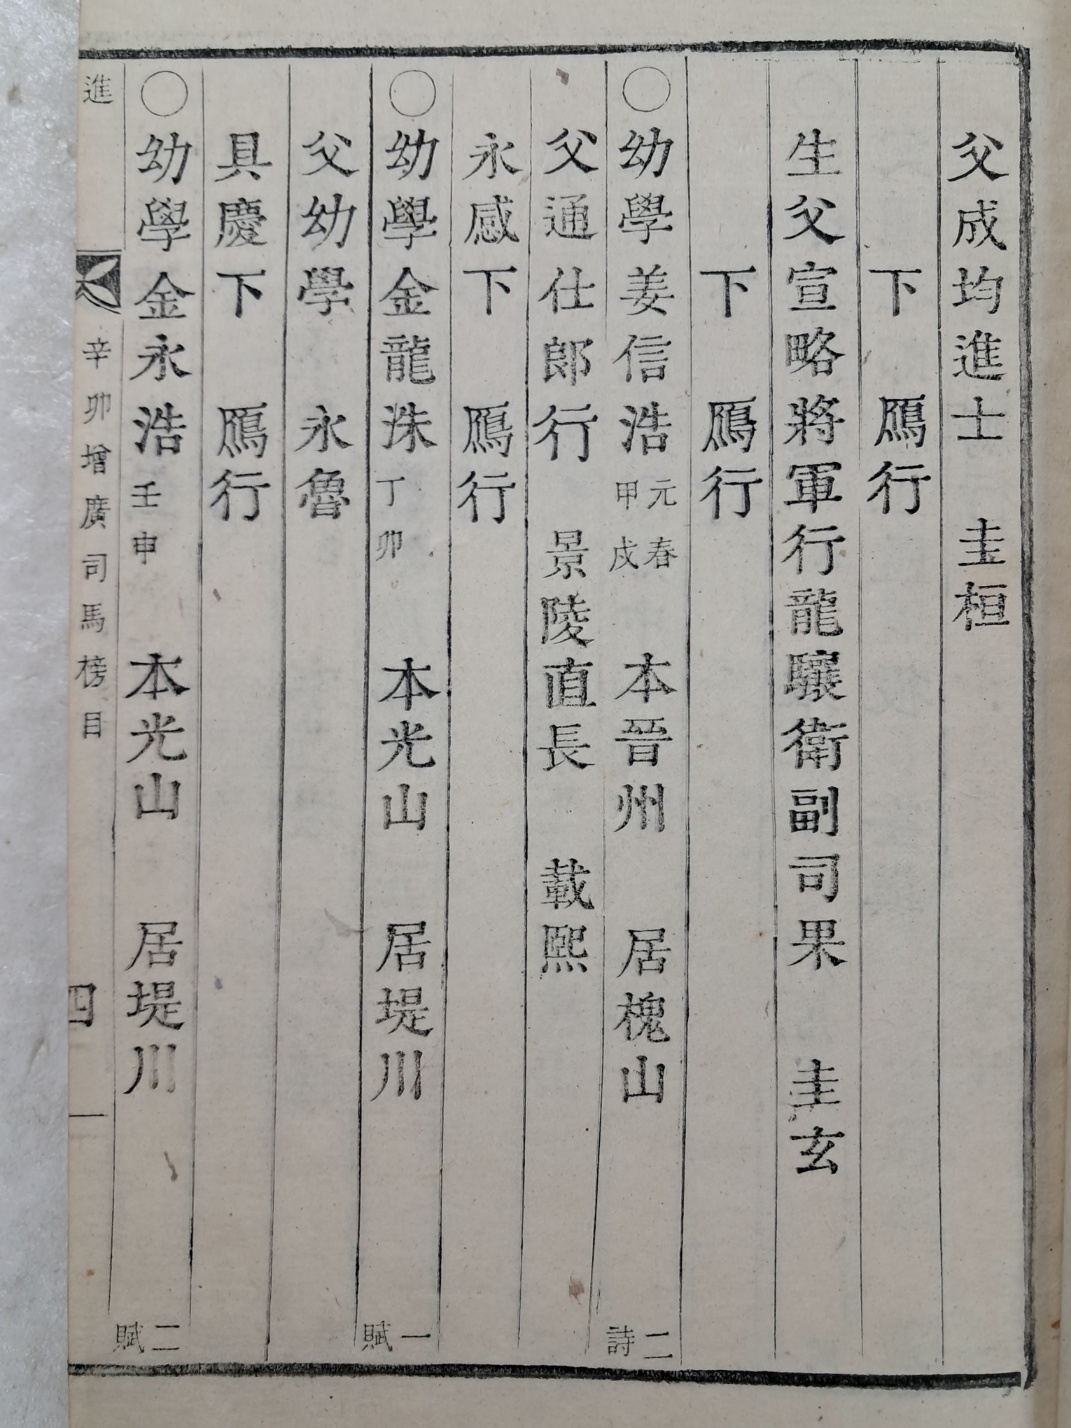 父成均進士 圭桓
下 鴈行
生父宣略將軍行龍驤衛副司果 圭玄
下 鴈行
○幼學姜信浩 元春 甲戌 本晉州 居槐山 二詩
父通仕郎行 景陵直長 載熙
永感下 鴈行
○幼學金龍洙 丁卯 本光山 居堤川 一賦
父幼學 永魯
具慶下 鴈行
○幼學金永浩 壬申 本光山 居堤川 二賦
進 辛卯增廣司馬榜目 四